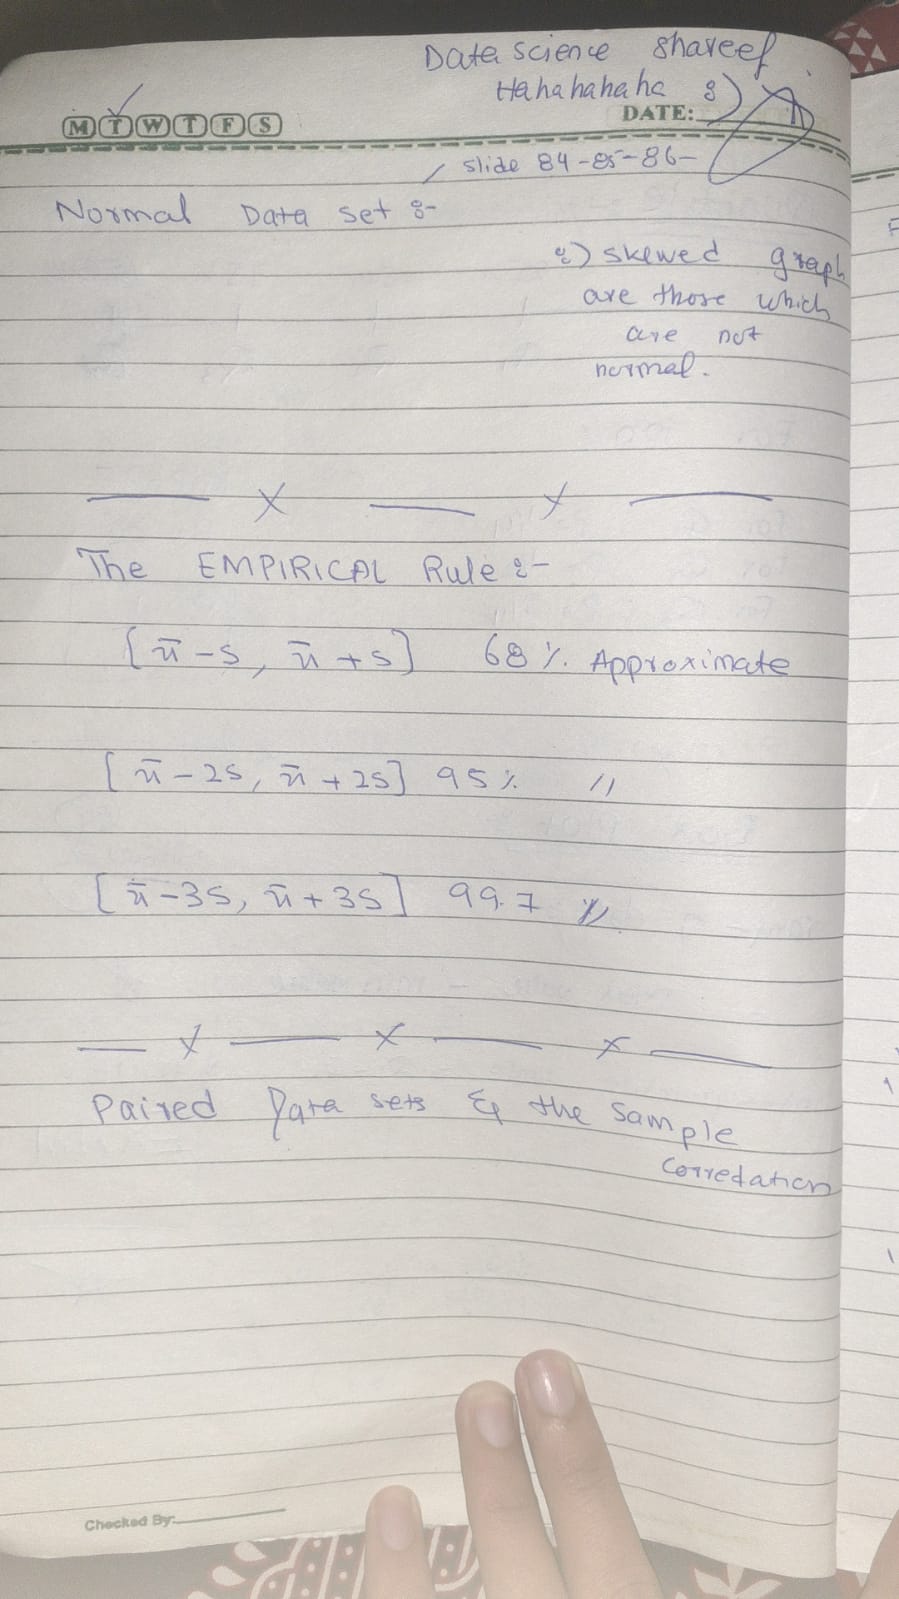 Data science shareef
Hahahahaha :)
M T W T F S
DATE:
/ slide 84-85-86-
Normal Data set :-
:) skewed graph
are those which
are not
normal.
The EMPIRICAL Rule :-
[x̄ - s, x̄ + s] 68 % Approximate
[x̄ - 2s, x̄ + 2s] 95 % //
[x̄ - 3s, x̄ + 3s] 99.7 //
Paired Data sets & the sample
correlation
Checked By: